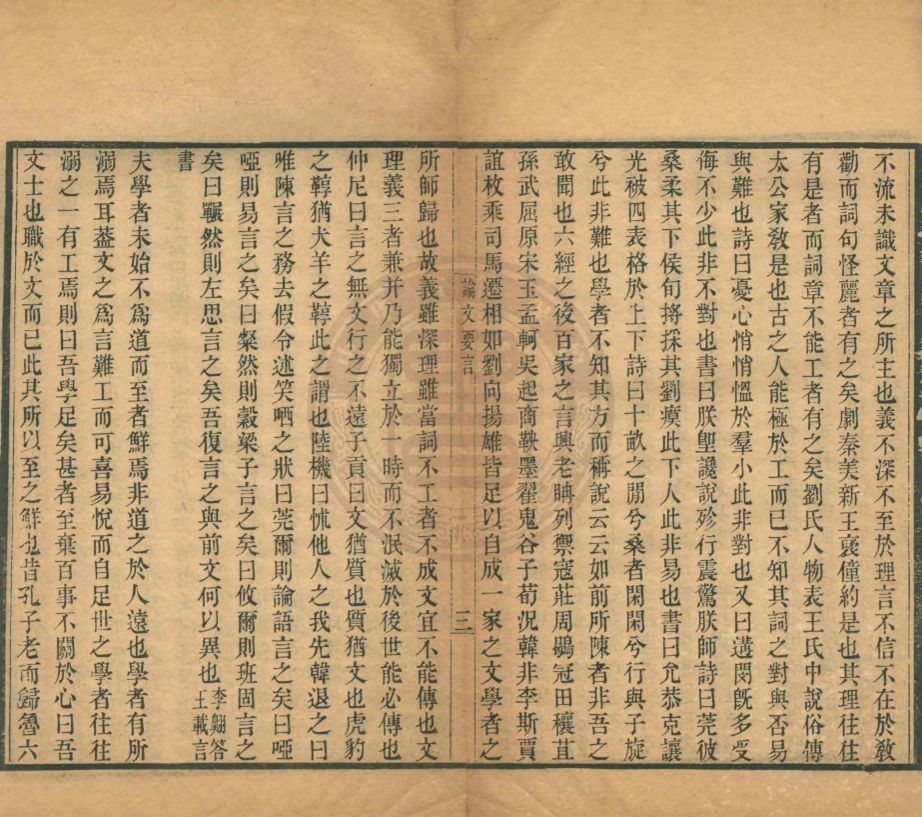 不流未識文章之所主也義不深不至於理言不信不在於敎
勸而詞句怪麗者有之矣劇秦美新王褒僮約是也其理往往
有是者而詞章不能工者有之矣劉氏人物表王氏中說俗傳
太公家敎是也古之人能極於工而已不知其詞之對與否易
與難也詩曰憂心悄悄慍於羣小此非對也又曰遘閔旣多受
侮不少此非不對也書曰朕堲讒說殄行震驚朕師詩曰菀彼
桑柔其下侯旬捋採其劉瘼此下人此非易也書曰允恭克讓
光被四表格於上下詩曰十畝之閒兮桑者閑閑兮行與子旋
兮此非難也學者不知其方而稱說云云如前所陳者非吾之
敢聞也六經之後百家之言興老聃列禦寇莊周鶡冠田穰苴
孫武屈原宋玉孟軻吳起商鞅墨翟鬼谷子荀況韓非李斯賈
誼枚乘司馬遷相如劉向揚雄皆足以自成一家之文學者之
論文要言
三
所師歸也故義雖深理雖當詞不工者不成文宜不能傳也文
理義三者兼并乃能獨立於一時而不泯滅於後世能必傳也
仲尼曰言之無文行之不遠子貢曰文猶質也質猶文也虎豹
之鞟猶犬羊之鞟此之謂也陸機曰怵他人之我先韓退之曰
唯陳言之務去假令述笑哂之狀曰莞爾則論語言之矣曰啞
啞則易言之矣曰粲然則穀梁子言之矣曰攸爾則班固言之
矣曰囅然則左思言之矣吾復言之與前文何以異也李翺答王載言
書
夫學者未始不爲道而至者鮮焉非道之於人遠也學者有所
溺焉耳葢文之爲言難工而可喜易悅而自足世之學者往往
溺之一有工焉則曰吾學足矣甚者至棄百事不關於心曰吾
文士也職於文而已此其所以至之鮮也昔孔子老而歸魯六